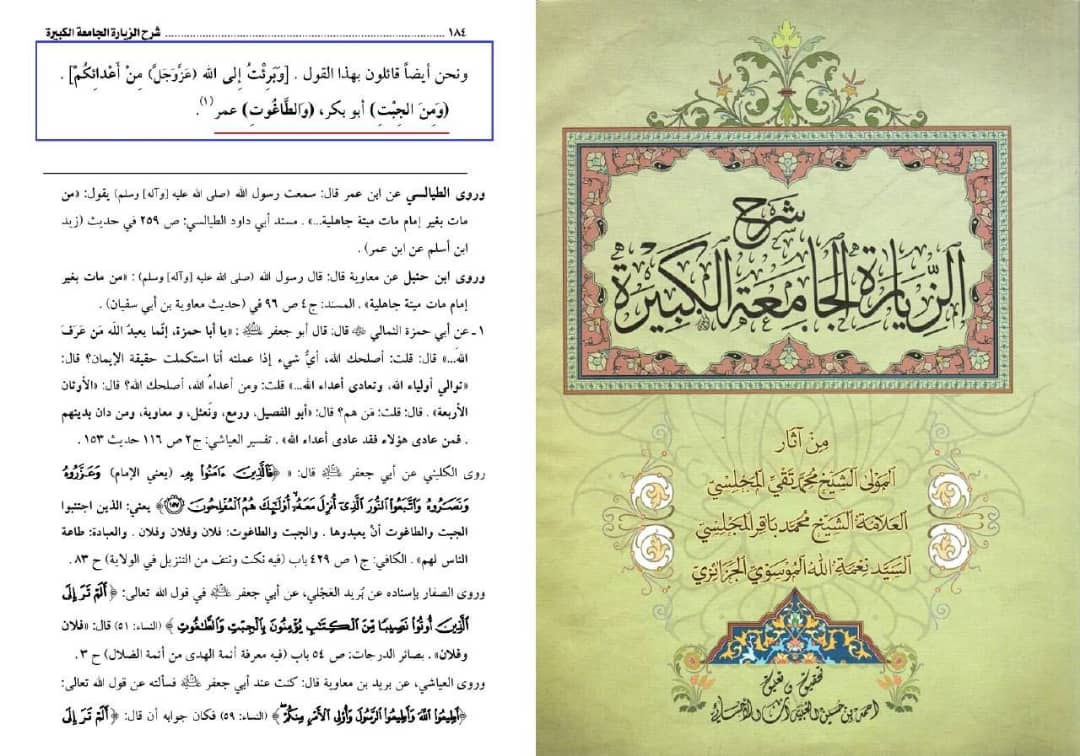 ١٨٤ ........ شرح الزيارة الجامعة الكبيرة
ونحن أيضاً قائلون بهذا القول . [وَبَرِئْتُ إِلى الله (عَزَّوَجَلَّ) مِنْ أَعْدائِكُمْ] .
(وَمِنَ الجِبْتِ) أبو بكر، (وَالطَّاغُوتِ) عمر (١).
وروى الطيالسي عن ابن عمر قال: سمعت رسول الله (صلى الله عليه [وآله] وسلم) يقول: «من
مات بغير إمام مات ميتة جاهلية...» . مسند أبي داود الطيالسي: ص ٢٥٩ في حديث (زيد
ابن أسلم عن ابن عمر) .
وروى ابن حنبل عن معاوية قال: قال رسول الله (صلى الله عليه [وآله] وسلم) : «من مات بغير
إمام مات ميتة جاهلية» . المسند: ج٤ ص ٩٦ في (حديث معاوية بن أبي سفيان) .
١ـ عن أبي حمزة الثمالي قال: قال أبو جعفر : «يا أبا حمزة، إنّما يعبد الله مَن عَرَفَ
الله...» قال: قلت: أصلحك الله، أيُّ شيء إذا عملته أنا استكملت حقيقة الإيمان؟ قال:
«توالي أولياء الله، وتعادي أعداء الله...» قلت: ومن أعداءُ الله، أصلحك الله؟ قال: «الأوثان
الأربعة» . قال: قلت: مَن هم؟ قال: «أبو الفصيل، ورمع، ونَعثل، و معاوية، ومن دان بدينهم
. فمن عادى هؤلاء فقد عادى أعداء الله» . تفسير العياشي: ج٢ ص ١١٦ حديث ١٥٣ .
روى الكليني عن أبي جعفر قال: « ﴿فَالَّذِينَ ءَامَنُوا بِهِ﴾ (يعني الإمام) ﴿وَعَزَّرُوهُ
وَنَصَرُوهُ وَاتَّبَعُوا النُّورَ الَّذِي أُنزِلَ مَعَهُ أُوْلَٰئِكَ هُمُ الْمُفْلِحُونَ ١٥٧﴾ يعني: الذين اجتنبوا
الجبت والطاغوت أنْ يعبدوها . والجبت والطاغوت: فلان وفلان وفلان . والعبادة: طاعة
الناس لهم» . الكافي: ج١ ص ٤٢٩ باب (فيه نكت ونتف من التنزيل في الولاية) ح ٨٣ .
وروى الصفار بإسناده عن بُريد العَجْلي، عن أبي جعفر في قول الله تعالى: ﴿أَلَمْ تَرَ إِلَى
الَّذِينَ أُوتُوا نَصِيبًا مِّنَ الْكِتَابِ يُؤْمِنُونَ بِالْجِبْتِ وَالطَّاغُوتِ ﴾ (النساء: ٥١) قال: «فلان
وفلان» . بصائر الدرجات: ص ٥٤ باب (فيه معرفة أئمة الهدى من أئمة الضلال) ح ٣ .
وروى العياشي، عن بريد بن معاوية قال: كنت عند أبي جعفر فسألته عن قول الله تعالى:
﴿أَطِيعُوا اللَّهَ وَأَطِيعُوا الرَّسُولَ وَأُوْلِى الْأَمْرِ مِنكُمْ﴾ (النساء: ٥٩) فكان جوابه أن قال: ﴿أَلَمْ تَرَ إِلَى
شرح
الزيارة الجامعة الكبيرة
مِنْ آثار
المولى الشيخ محمد تقي المجلسي
العلامة الشيخ محمد باقر المجلسي
السيد نعمة الله الموسوي الجزائري
تحقيق وتعليق